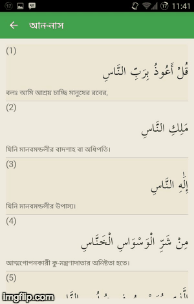 11:41
আন-নাস
(1)
قُلْ أَعُوذُ بِرَبِّ النَّاسِ
বলুনঃ আমি আশ্রয় চাচ্ছি মানুষের রবের,
(2)
مَلِكِ النَّاسِ
যিনি মানবমন্ডলীর বাদশাহ বা অধিপতি।
(3)
إِلَٰهِ النَّاسِ
যিনি মানবমন্ডলীর উপাস্য।
(4)
مِنْ شَرِّ الْوَسْوَاسِ الْخَنَّاسِ
আত্মগোপনকারী কু-মন্ত্রণাদাতার অনিষ্টতা হতে।
(5)
imgflip.com